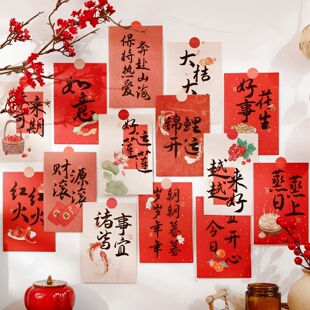 来期
可
如意
奔赴山海
保持热爱
大桔
大
好事
花生
好运
莲莲
锦鲤
开运
越来
越好
蒸蒸
日上
财源
滚滚
红红
火火
诸事
皆宜
朝朝暮暮
岁岁年年
今日
宜开心